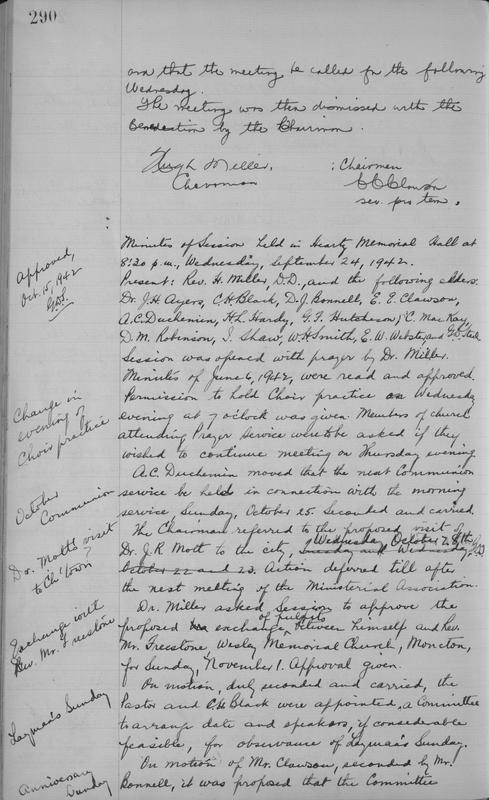 290
and that the meeting be called for the following
Wednesday.
The meeting was then dismissed with the
Benediction by the Chairman.
Hugh Miller, : Chairmen
Chairman C C Clawson
sec. pro tem.
Approved,
Oct. 15, 1942
G.D.S.
Minutes of Session held in Heartz Memorial Hall at
8:20 p.m., Wednesday, September 24, 1942.
Present: Rev. H. Miller, D.D., and the following elders:
Dr. J.H. Ayers, C.H. Black, D.J. Bonnell, E. E. Clawson,
A.C. Duchemin, H.L. Hardy, G.F. Hutcheson, C. MacKay,
D.M. Robinson, I. Shaw, W.H. Smith, E.W. Webster, and G.D. Steel
Session was opened with prayer by Dr. Miller.
Minutes of June 6, 1942, were read and approved.
Change in
evening of
Choir practice
Permission to hold Choir practice on Wednesday
evening at 7 o'clock was given. Members of church
attending Prayer Service were to be asked if they
wished to continue meeting on Thursday evening.
October
Communion
A.C. Duchemin moved that the next Communion
service be held in connection with the morning
service, Sunday, October 25. Seconded and carried.
Dr. Mott's visit
to Ch'town?
The Chairman referred to the proposed visit of
Dr. J.R. Mott to the city, Wednesday, October 28th. G.D.S.
Tuesday and Wednesday,
October 22 and 23. Action deferred till after
the next meeting of the Ministerial Association.
Exchange with
Rev. Mr. Freestone
Dr. Miller asked Session to approve the
proposed exchange of pulpits between himself and Rev.
Mr. Freestone, Wesley Memorial Church, Moncton,
for Sunday, November 1. Approval given.
Layman's Sunday
On motion, duly seconded and carried, the
Pastor and C.H. Black were appointed a Committee
to arrange date and speakers, if considerable
feasible, for observance of Layman's Sunday.
Anniversary
Sunday
On motion of Mr. Clawson, seconded by Mr.
Bonnell, it was proposed that the Committee